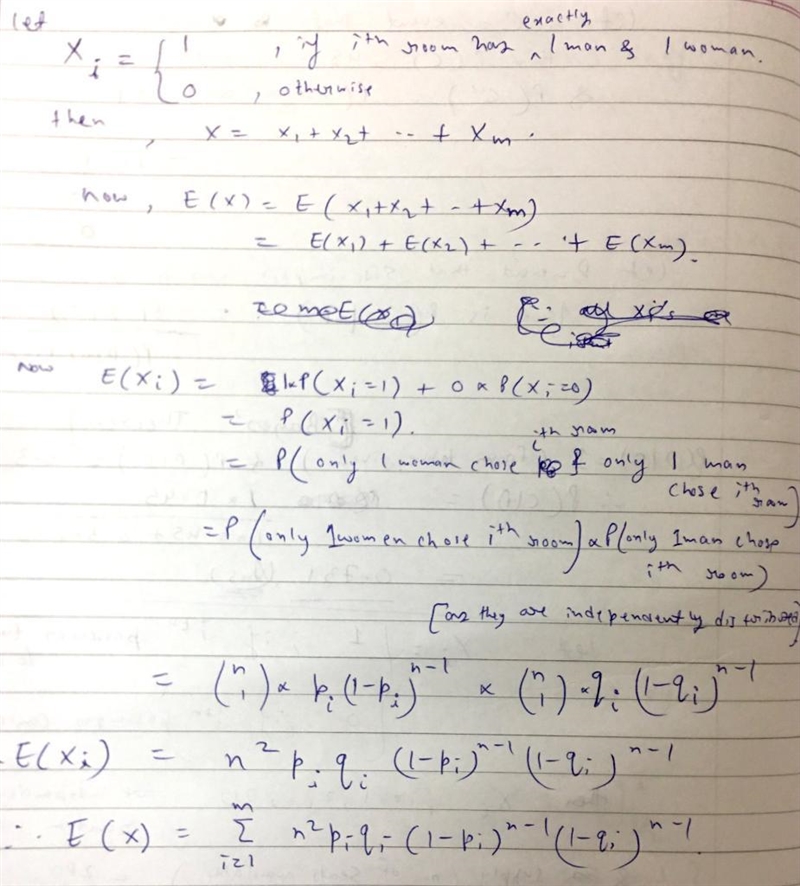 let
X_i = { 1 , if ith room has exactly 1 man & 1 woman.
0 , otherwise
then , X = X_1 + X_2 + -- + X_m .
now , E(X) = E( X_1+X_2+ - +X_m)
= E(X_1) + E(X_2) + -- + E(X_m).
Now E(X_i) = 1×P(X_i=1) + 0×P(X_i=0)
= P(X_i=1).
= P( only 1 woman chose ith room & only 1 man
chose ith room)
= P(only 1women chose ith room)×P(only 1man chose
ith room)
[as they are independently distributed]
= (n 1) × p_i (1-p_i)^{n-1} × (n 1) × q_i (1-q_i)^{n-1}
E(X_i) = n^2 p_i q_i (1-p_i)^{n-1} (1-q_i)^{n-1}
∴ E(X) = Σ_{i=1}^{m} n^2 p_i q_i (1-p_i)^{n-1} (1-q_i)^{n-1}.